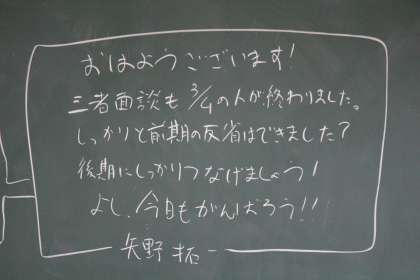 おはようございます!
三者面談も3/4の人が終わりました。
しっかりと前期の反省はできました?
後期にしっかりつなげましょう!
よし、今日もがんばろう!!
矢野 拓一